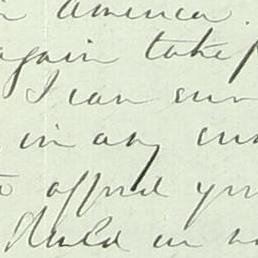 in America.
again take
I can
in any
to afford you
Should